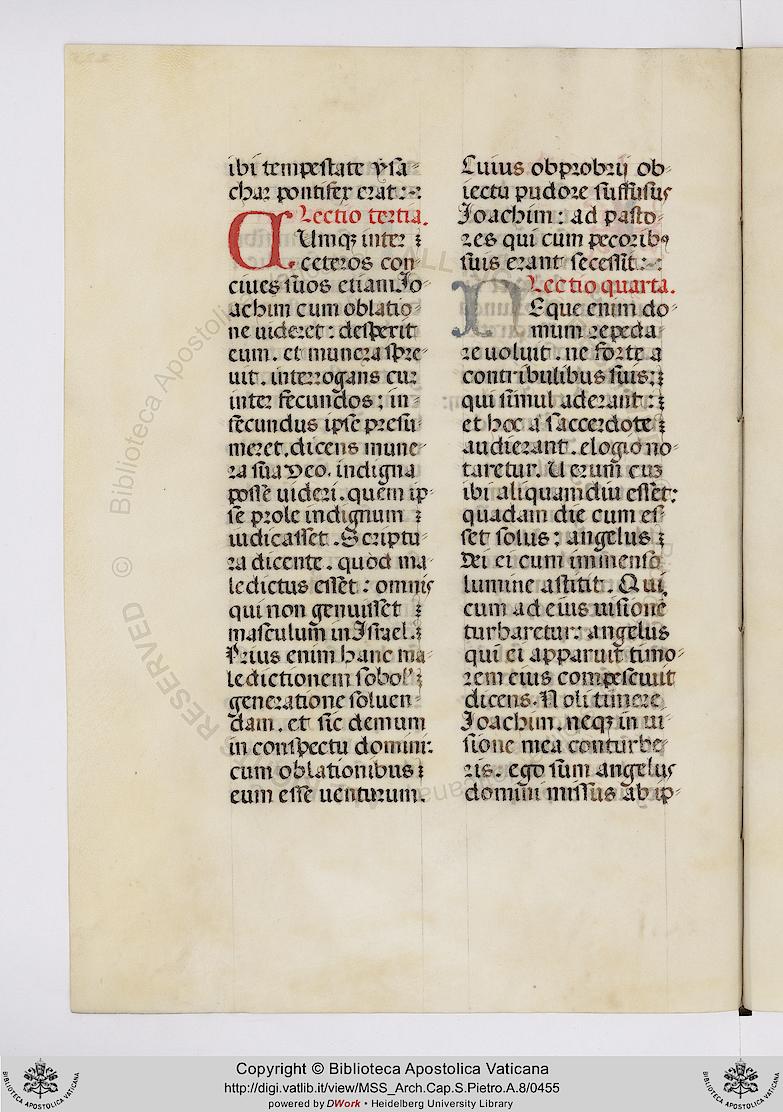 ibi tempestate ysa-
char pontifex erat:-:
Lectio tertia.
CUmqȝ inter ⁊
ceteros con
ciues suos etiam Jo-
achim cum oblatio-
ne uideret: despexit
eum. et munera spre-
uit. interrogans cur
inter fecundos: in-
fecundus ipse presu-
meret. dicens mune-
ra sua deo. indigna
posse uideri. quem ip-
se prole indignum ⁊
iudicasset. Scriptu-
ra dicente. quod ma-
ledictus esset: omnis
qui non genuisset ⁊
masculum in Israel.⁊
Prius enim hanc ma-
ledictionem sobol' ⁊
generatione soluen-
dam. et sic demum
in conspectu domini:
cum oblationibus ⁊
eum esse uenturum.
Cuius obprobrij ob-
iectu pudore suffusus
Joachim: ad pasto-
res qui cum pecoribꝰ
suis erant secessit:-:
Lectio quarta.
NEque enim do-
mum repeda-
re uoluit. ne forte a
contribulibus suis:⁊
qui simul aderant:⁊
et hoc a saccerdote ⁊
audierant. elogio no-
taretur. Uerum̄ cuȝ
ibi aliquamdiu esset:
quadam die cum es-
set solus: angelus ⁊
dei ei cum immenso
lumine astitit. Qui,
cum ad eius uisionē
turbaretur: angelus
qui ei apparuit timo-
rem eius compescuit
dicens. Noli timere
Joachim. neqȝ in ui-
sione mea conturbe-
ris. ego sum angelus
domini missus ab ip-
© Biblioteca Apostolica Vaticana
Copyright © Biblioteca Apostolica Vaticana
http://digi.vatlib.it/view/MSS_Arch.Cap.S.Pietro.A.8/0455
powered by DWork • Heidelberg University Library
BIBLIOTECA APOSTOLICA VATICANA
BIBLIOTECA APOSTOLICA VATICANA